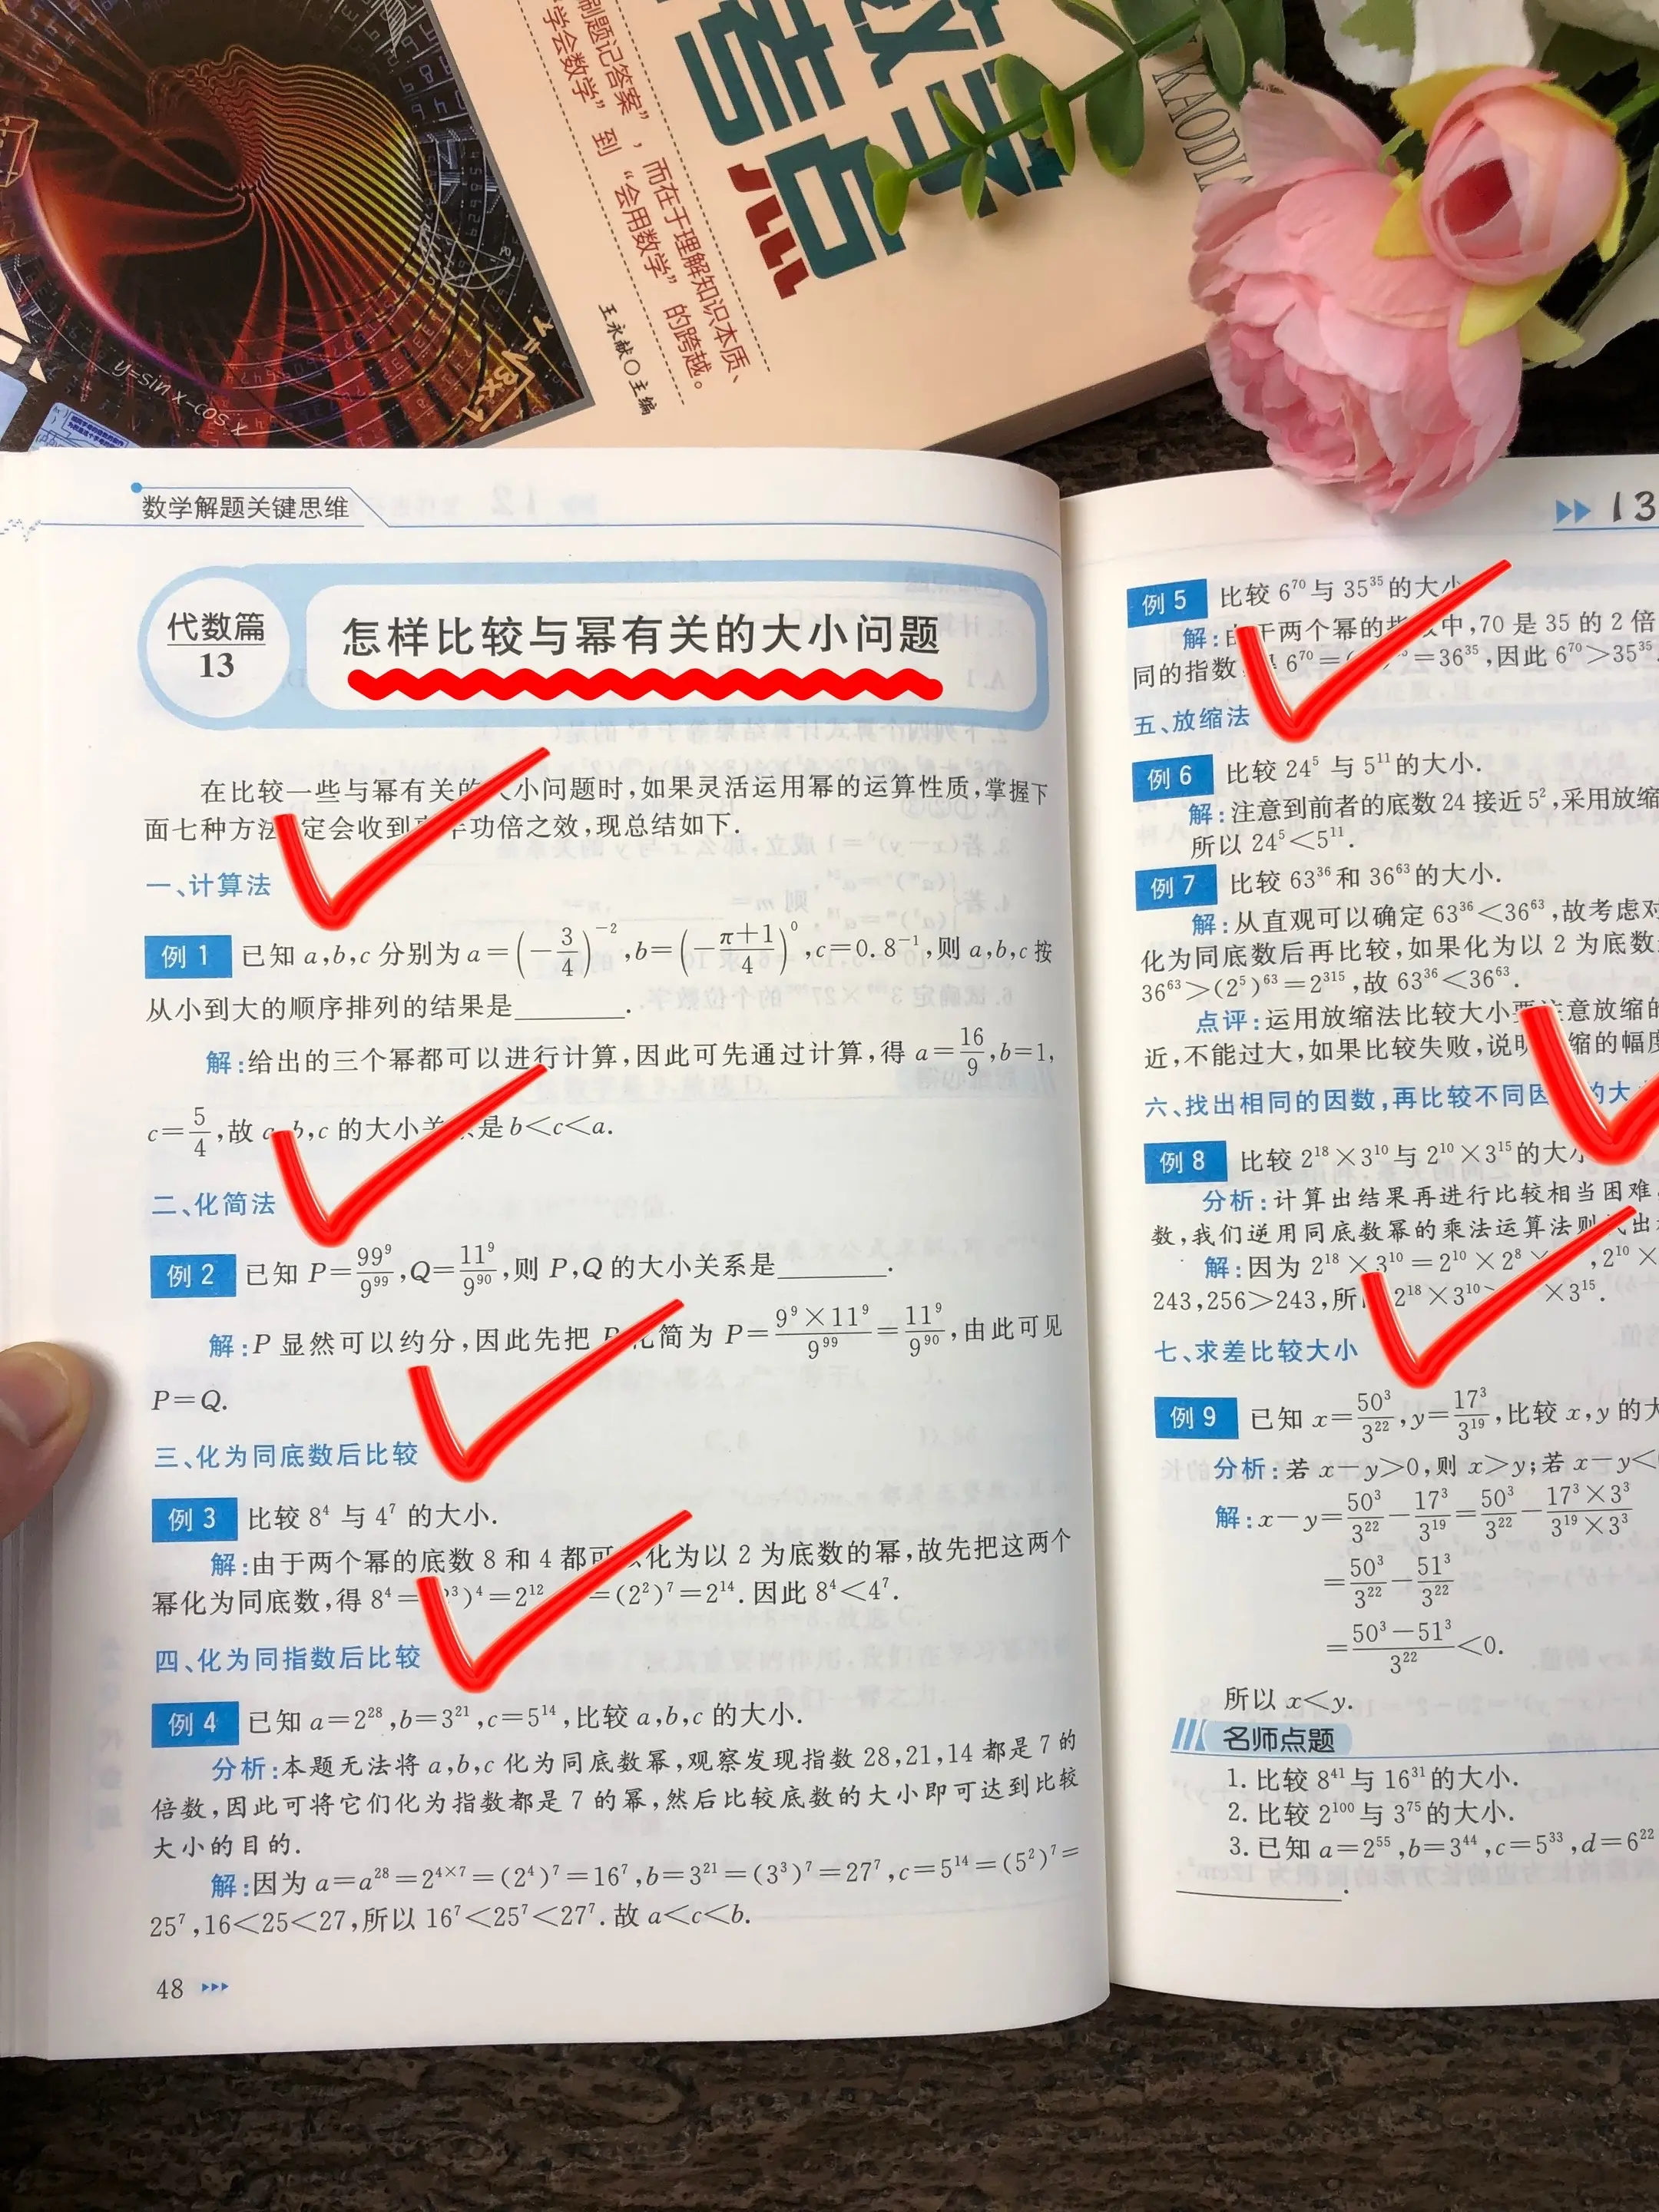 刷题记答案”，而在于理解知识本质、
学会数学”到“会用数学”的跨越。
王永献○主编
数学
考点
KAODI
y=sin x-cos x
数学解题关键思维
代数篇
13
怎样比较与幂有关的大小问题
在比较一些与幂有关的 小问题时,如果灵活运用幂的运算性质,掌握下
面七种方法 定会收到 半功倍之效,现总结如下.
一、计算法
例 1 已知 a,b,c 分别为 a=(-3/4)⁻²,b=(-(π+1)/4)⁰,c=0.8⁻¹,则 a,b,c 按
从小到大的顺序排列的结果是________.
解:给出的三个幂都可以进行计算,因此可先通过计算,得 a=16/9,b=1,
c=5/4,故 a,b,c 的大小关系是 b<c<a.
二、化简法
例 2 已知 P=99⁹/9⁹⁹,Q=11⁹/9⁹⁰,则 P,Q 的大小关系是________.
解:P 显然可以约分,因此先把 P 化简为 P=(9⁹×11⁹)/9⁹⁹=11⁹/9⁹⁰,由此可见
P=Q.
三、化为同底数后比较
例 3 比较 8⁴ 与 4⁷ 的大小.
解:由于两个幂的底数 8 和 4 都可以化为以 2 为底数的幂,故先把这两个
幂化为同底数,得 8⁴= ³)⁴=2¹² =(2²)⁷=2¹⁴.因此 8⁴<4⁷.
四、化为同指数后比较
例 4 已知 a=2²⁸,b=3²¹,c=5¹⁴,比较 a,b,c 的大小.
分析:本题无法将 a,b,c 化为同底数幂,观察发现指数 28,21,14 都是 7 的
倍数,因此可将它们化为指数都是 7 的幂,然后比较底数的大小即可达到比较
大小的目的.
解:因为 a=a²⁸=2⁴ˣ⁷=(2⁴)⁷=16⁷,b=3²¹=(3³)⁷=27⁷,c=5¹⁴=(5²)⁷=
25⁷,16<25<27,所以 16⁷<25⁷<27⁷.故 a<c<b.
48
13
例 5 比较 6⁷⁰ 与 35³⁵ 的大小
解:由于两个幂的指数中,70 是 35 的 2 倍
同的指数 6⁷⁰= =36³⁵,因此 6⁷⁰>35³⁵.
五、放缩法
例 6 比较 24⁵ 与 5¹¹ 的大小.
解:注意到前者的底数 24 接近 5²,采用放缩
所以 24⁵<5¹¹.
例 7 比较 63³⁶ 和 36⁶³ 的大小.
解:从直观可以确定 63³⁶<36⁶³,故考虑对
化为同底数后再比较,如果化为以 2 为底数
36⁶³>(2⁵)⁶³=2³¹⁵,故 63³⁶<36⁶³.
点评:运用放缩法比较大小要注意放缩的
近,不能过大,如果比较失败,说明 缩的幅度
六、找出相同的因数,再比较不同因 的大
例 8 比较 2¹⁸×3¹⁰ 与 2¹⁰×3¹⁵ 的大小
分析:计算出结果再进行比较相当困难,
数,我们逆用同底数幂的乘法运算法则 出
解:因为 2¹⁸×3¹⁰=2¹⁰×2⁸× ,2¹⁰×
243,256>243,所 2¹⁸×3¹⁰> ×3¹⁵.
七、求差比较大小
例 9 已知 x=50³/3²²,y=17³/3¹⁹,比较 x,y 的大
分析:若 x-y>0,则 x>y;若 x-y<
解:x-y=50³/3²²-17³/3¹⁹=50³/3²²-(17³×3³)/(3¹⁹×3³)
=50³/3²²-51³/3²²
=(50³-51³)/3²²<0.
所以 x<y.
名师点题
1. 比较 8⁴¹ 与 16³¹ 的大小.
2. 比较 2¹⁰⁰ 与 3⁷⁵ 的大小.
3. 已知 a=2⁵⁵,b=3⁴⁴,c=5³³,d=6²²
________.